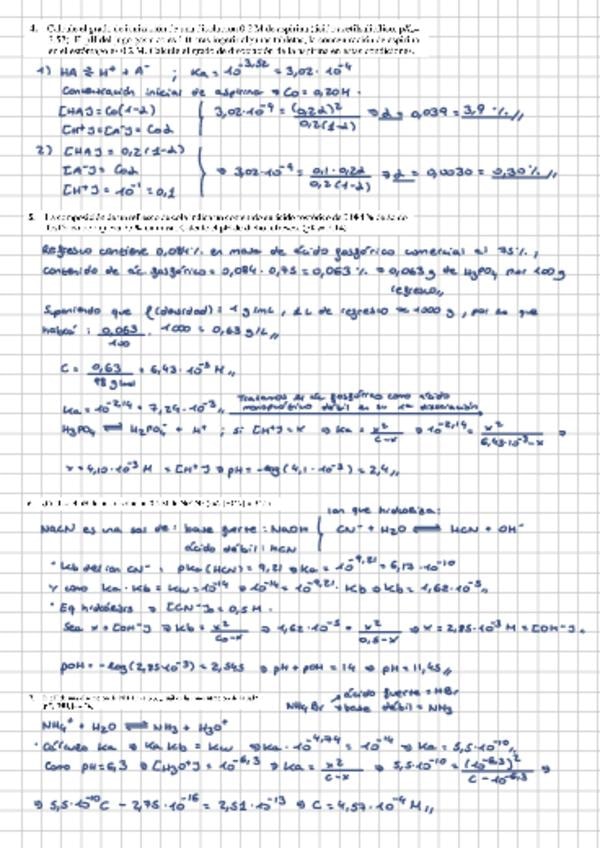 4. Calcule el grado de ionización de una disolución 0,2 M de aspirina (ácido acetilsalicílico, pKa=
3,52). El pH del jugo gástrico es 1. Si tras ingerir la concentración de aspirina
en el estómago es 0,2 M. Calcule el grado de disociación de la aspirina en estas condiciones.
1) HA ⇌ H⁺ + A⁻ ; Ka = 10^-3,52 = 3,02·10^-4
Concentración inicial de aspirina ⇒ Co = 0,20M.
[HA] = Co(1-α)
[H⁺] = [A⁻] = Coα
3,02·10^-4 = (0,2α)²/0,2(1-α) ⇒ α = 0,039 = 3,9 %//
2) [HA] = 0,2(1-α)
[A⁻] = Coα
[H⁺] = 10^-1 = 0,1
⇒ 3,02·10^-4 = 0,1·0,2α/0,2(1-α) ⇒ α = 0,0030 = 0,30%//
5.
Refresco contiene 0,084% en masa de ácido fosfórico comercial al 75%,
contenido de ác. fosfórico = 0,084 · 0,75 = 0,063 % ⇒ 0,063 g de H₃PO₄ por 100g
refresco//
Suponiendo que ρ(densidad) = 1 g/mL, 1L de refresco ≈ 1000 g, por lo que
habrá: 0,063/100 · 1000 = 0,63 g/L//
C = 0,63/98 g/mol = 6,43·10^-3 M//
Ka = 10^-2,14 = 7,24·10^-3// Tratamos el ác. fosfórico como ácido
monoprótico débil en su 1ª disociación.
H₃PO₄ ⇌ H₂PO₄⁻ + H⁺ ; si [H⁺] = x ⇒ Ka = x²/C-x ⇒ 10^-2,14 = x²/6,43·10^-3-x ⇒
x = 4,10·10^-3 M = [H⁺] ⇒ pH = -log(4,1·10^-3) = 2,4//
6.
NaCN es una sal de: base fuerte: NaOH
ácido débil: HCN
Ion que hidroliza:
CN⁻ + H₂O ⇌ HCN + OH⁻
· Kb del ion CN⁻: pKa(HCN) = 9,21 ⇒ Ka = 10^-9,21 = 6,17·10^-10
y como Ka·Kb = Kw = 10^-14 ⇒ 10^-14 = 10^-9,21·Kb ⇒ Kb = 1,62·10^-5//
· Eq hidrólisis ⇒ [CN⁻]₀ = 0,5 M.
Sea x = [OH⁻] ⇒ Kb = x²/Co-x ⇒ 1,62·10^-5 = x²/0,5-x ⇒ x = 2,85·10^-3 M = [OH⁻].
pOH = -log(2,85·10^-3) = 2,545 ⇒ pH + pOH = 14 ⇒ pH = 11,45//
7.
NH₄Br ácido fuerte = HBr
base débil = NH₃
NH₄⁺ + H₂O ⇌ NH₃ + H₃O⁺
· Cálculo Ka ⇒ Ka·Kb = Kw ⇒ Ka·10^-4,74 = 10^-14 ⇒ Ka = 5,5·10^-10//
Como pH = 6,3 ⇒ [H₃O⁺] = 10^-6,3 ⇒ Ka = x²/C-x ⇒ 5,5·10^-10 = (10^-6,3)²/C-10^-6,3 ⇒
⇒ 5,5·10^-10 C - 2,75·10^-16 = 2,51·10^-13 ⇒ C = 4,57·10^-4 M//